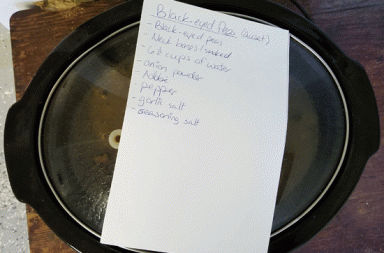 Black-eyed Peas (sweet)
- Black-eyed peas
- Neck bones/smoked
- 6-8 cups of water
- onion powder
- Adobo
- pepper
- garlic salt
- seasoning salt